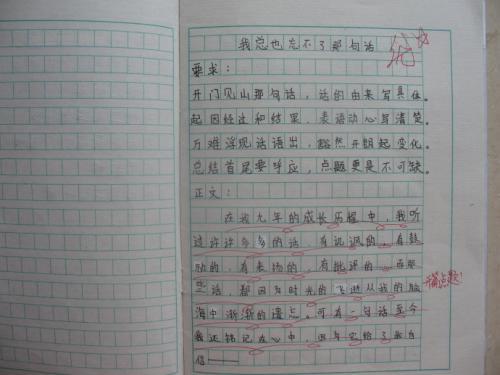 我总也忘不了那句话
优☆
要求：
开门见山那句话，话的由来写具体。
起因经过和结果，表语动心写清楚。
万难浮现话语出，豁然开朗起变化。
总结首尾要呼应，点题更是不可缺。
正文：
在我九年的成长历程中，我听
过许许多多的话，有讽刺的，有鼓
励的，有表扬的，有批评的，
些话都因为时光的飞逝从我的脑
海中渐渐的遗忘。可有一句话至今
我还铭记在心中，因为它给了我自
信——
开篇点题！